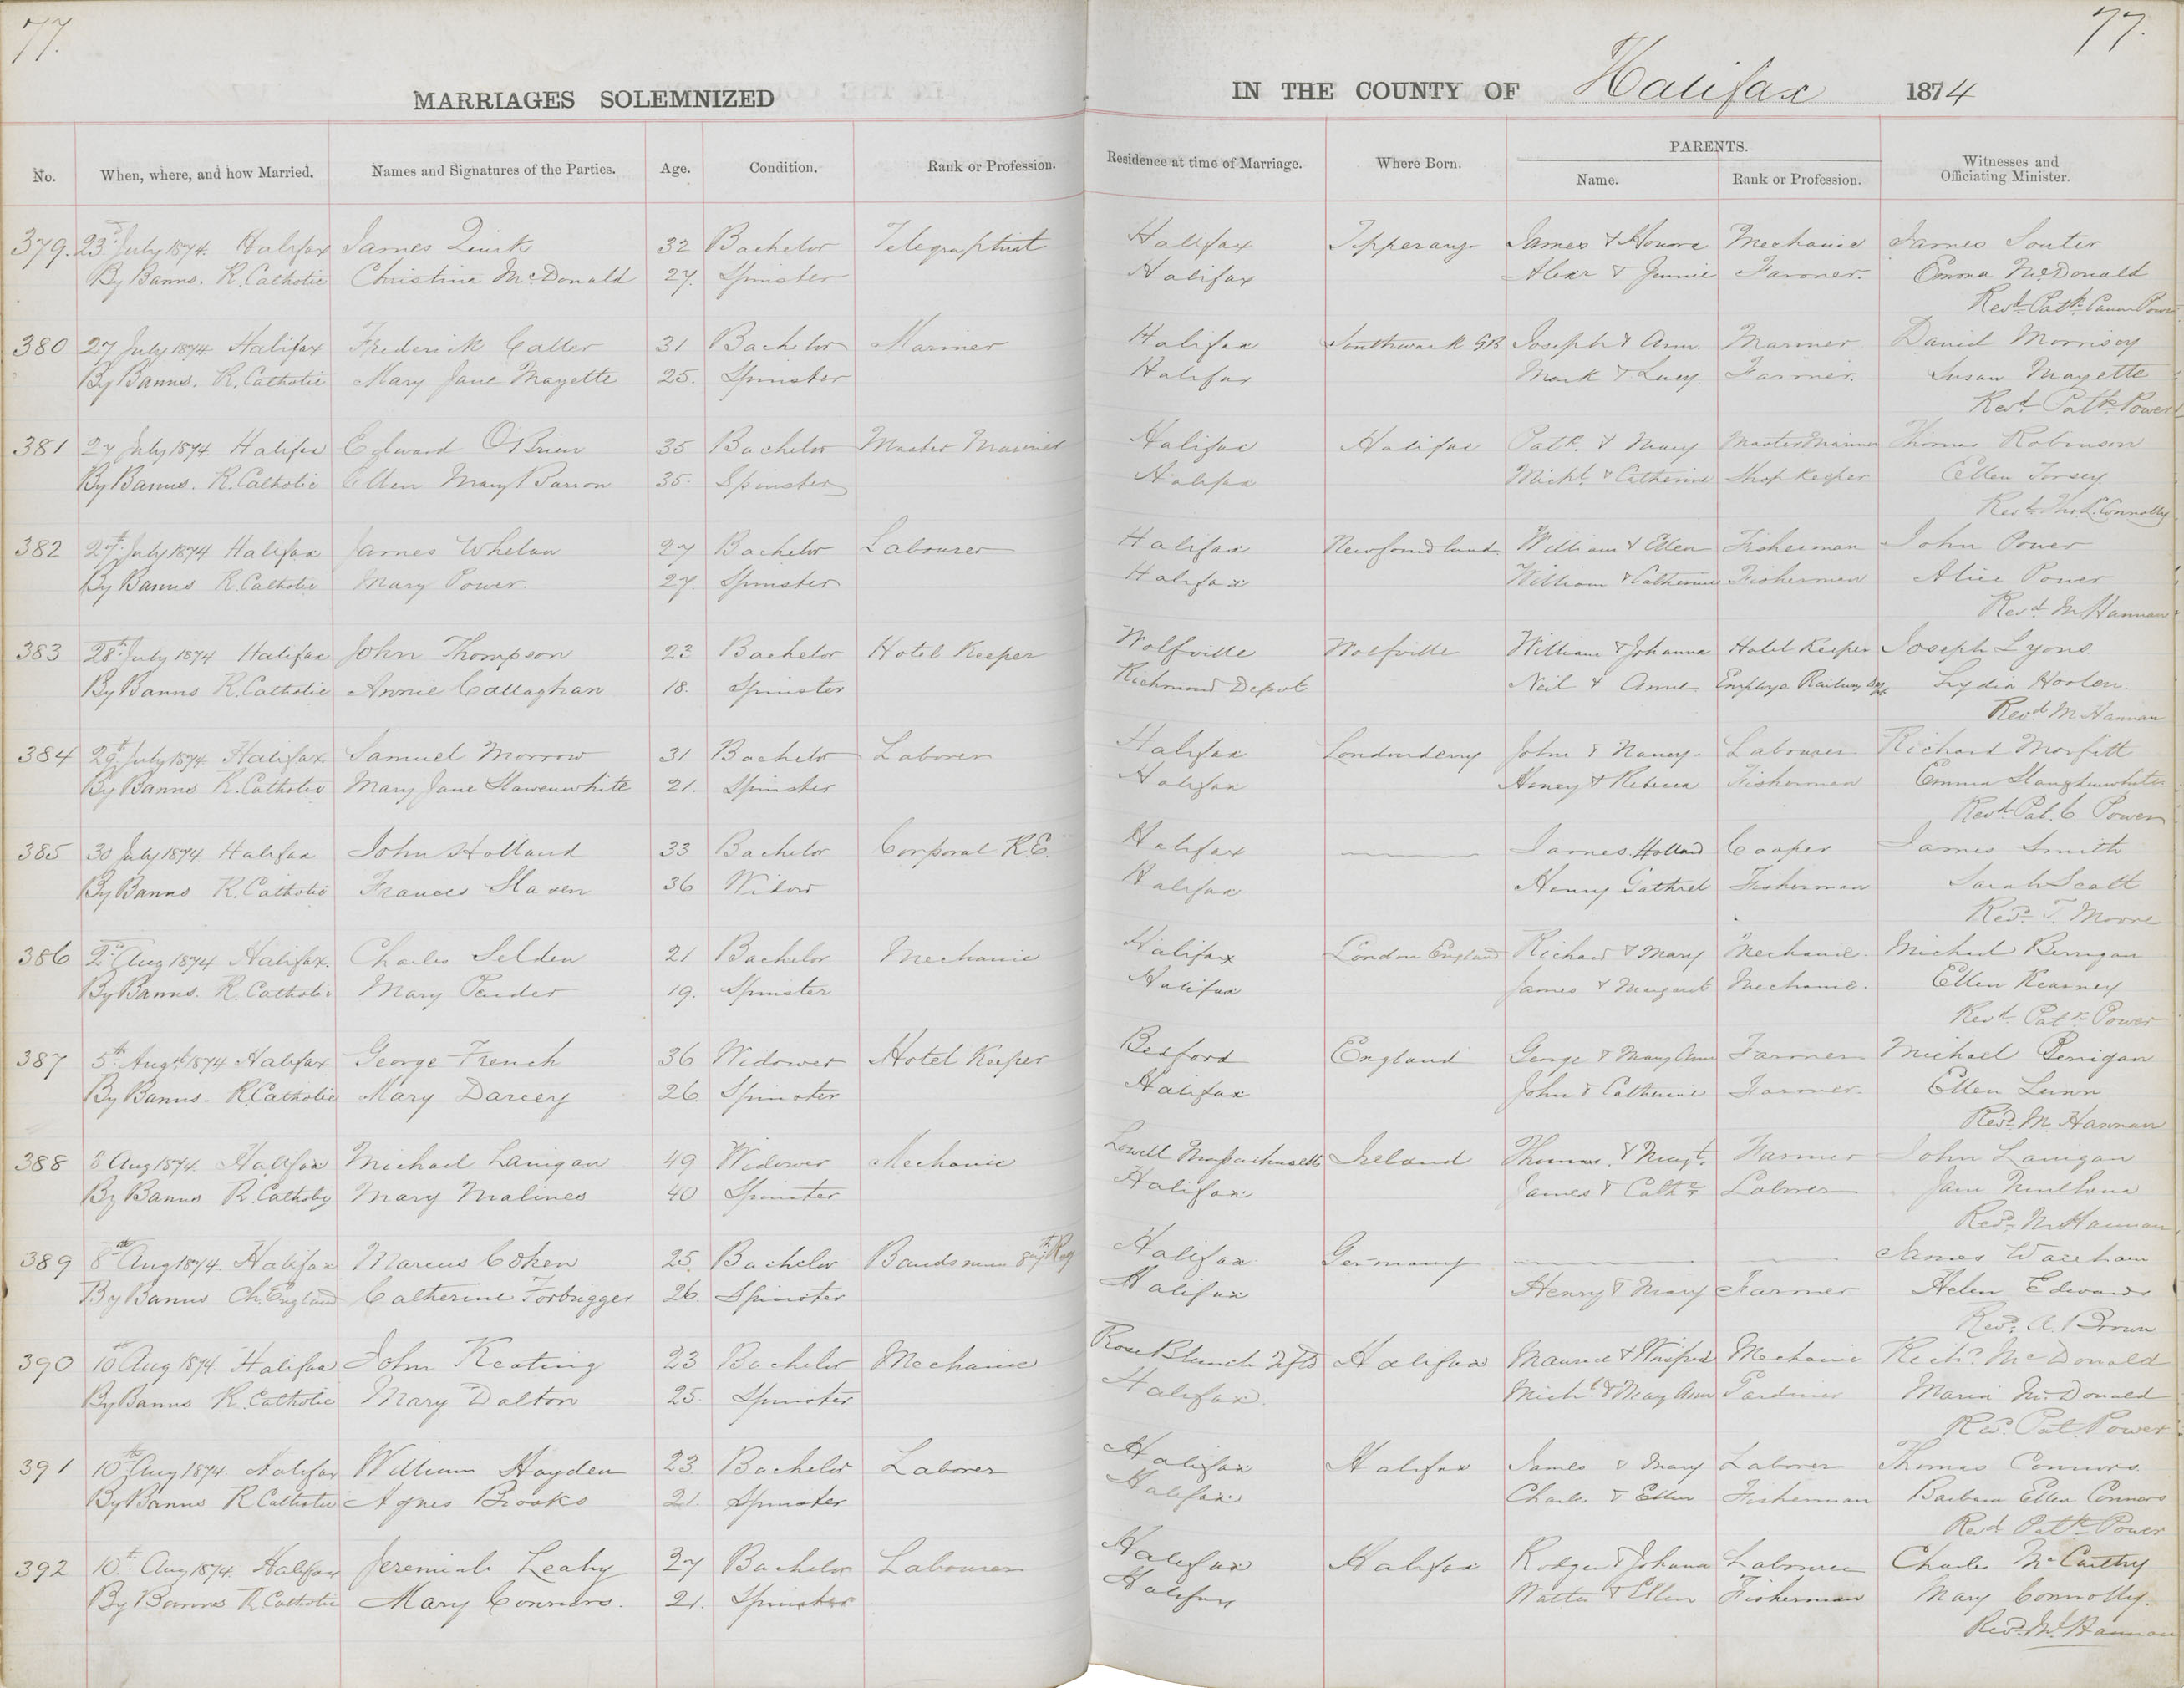 77.
77.
MARRIAGES SOLEMNIZED
IN THE COUNTY OF Halifax 1874
No. When, where, and how Married. Names and Signatures of the Parties. Age. Condition. Rank or Profession. Residence at time of Marriage. Where Born. PARENTS. Name. Rank or Profession. Witnesses and Officiating Minister.
379. 23d July 1874. Halifax James Quirk 32 Bachelor Telegraphist Halifax Tipperary James & Honora Mechanic James Souter
By Banns. R. Catholic Christina McDonald 27. Spinster Halifax Alexr & Jennie Farmer. Emma McDonald
Revd Patk Canon Power
380 27 July 1874 Halifax Frederick Caller 31 Bachelor Mariner Halifax Southwark GB Joseph & Ann Mariner David Morrisey
By Banns. R. Catholic Mary Jane Mayette 25. Spinster Halifax Mark & Lucy. Farmer. Susan Mayette
Revd Patk Power
381 27 July 1874 Halifax Edward O'Brien 35 Bachelor Master Mariner Halifax Halifax Patk. & Mary Master Mariner Thomas Robinson
By Banns. R. Catholic Ellen Mary Barron 35. Spinster Halifax Michl. & Catherine Shop Keeper Ellen Torsey
Revd Thos. L. Connolly
382 27th July 1874 Halifax James Whelan 27 Bachelor Labourer Halifax Newfoundland William & Ellen Fisherman John Power
By Banns R. Catholic Mary Power. 27. Spinster Halifax William & Catherine Fisherman Alice Power
Revd M Hannan
383 28th July 1874 Halifax John Thompson 23 Bachelor Hotel Keeper Wolfville Wolfville William & Johanna Hotel Keeper Joseph Lyons.
By Banns R. Catholic Annie Callaghan 18. Spinster Richmond Depot Neil & Anne Employe Railway Dept Lydia Hoolen.
Revd M Hannan
384 29th July 1874 Halifax Samuel Morrow 31 Bachelor Laborer Halifax Londonderry John & Nancy Labourer Richard Morfitt
By Banns R. Catholic Mary Jane Hawenwhite 21. Spinster Halifax Henry & Rebecca Fisherman Emma
Revd Pat. C. Power
385 30 July 1874 Halifax John Holland 33 Bachelor Corporal R.E. Halifax James Holland Cooper James Smith
By Banns R. Catholic Frances Slaven 36 Widow Halifax Henry Gathrel Fisherman Sarah Scott
Revd. T. Moore
386 2d Aug 1874 Halifax. Charles Selden 21 Bachelor Mechanic Halifax London England Richard & Mary Mechanic. Michael Berrigan
By Banns. R. Catholic Mary Pender 19. Spinster Halifax James & Margaret Mechanic. Ellen Kearney
Revd. Patk Power
387 5th Augt 1874 Halifax George French 36 Widower Hotel Keeper Bedford England George & Mary Ann Farmer Michael Berrigan
By Banns. R. Catholic Mary Darcey 26. Spinster Halifax John & Catherine Farmer. Ellen Lunn
Revd M. Hannan
388 8 Aug 1874. Halifax Michael Lanigan 49 Widower Mechanic Lowell Massachusetts Ireland Thomas & Margt. Farmer John Lanigan
By Banns R. Catholic Mary Malines 40 Spinster Halifax James & Cathe. Laborer Jane
Revd. M Hannan
389 8th Aug 1874. Halifax Marcus Cohen 25. Bachelor Bandsman 87th Reg Halifax Germany James Wareham
By Banns Ch. England Catherine Forbrigger 26. Spinster Halifax Henry & Mary Farmer Helen Edwards
Revd. A. Brown
390 10th Aug 1874. Halifax John Keating 23 Bachelor Mechanic Rose Blanch Nfld Halifax Maurice & Winifred Mechanic Richd. McDonald
By Banns R. Catholic Mary Dalton 25. Spinster Halifax. Michl. & Mary Ann Gardiner Maria McDonald
Revd. Pat. Power
391 10th Aug 1874. Halifax William Hayden 23. Bachelor Laborer Halifax Halifax James & Mary Laborer Thomas Connors.
By Banns R. Catholic Agnes Brooks 21. Spinster Halifax Charles & Ellen Fisherman Barbara Ellen Connors
Revd Patk Power
392 10th. Aug 1874. Halifax Jeremiah Leahy 27 Bachelor Labourer Halifax Halifax Rodger & Johana Labourer Charles McCarthy
By Banns R. Catholic Mary Connors. 21. Spinster Halifax Walter & Ellen Fisherman Mary Connolly.
Revd. M. Hannan